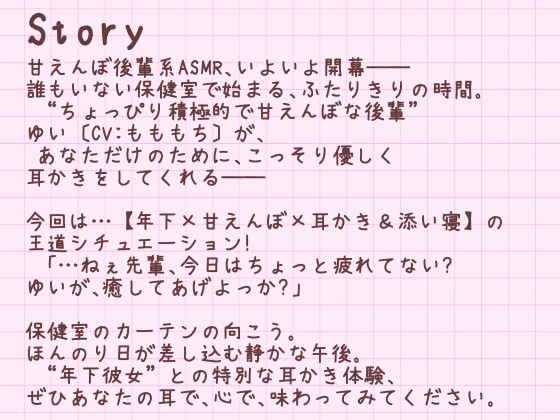 Story
甘えんぼ後輩系ASMR、いよいよ開幕――
誰もいない保健室で始まる、ふたりきりの時間。
“ちょっぴり積極的で甘えんぼな後輩”
ゆい〔CV:もももち〕が、
あなただけのために、こっそり優しく
耳かきをしてくれる――
今回は…【年下×甘えんぼ×耳かき＆添い寝】の
王道シチュエーション!
「…ねぇ先輩、今日はちょっと疲れてない?
ゆいが、癒してあげよっか?」
保健室のカーテンの向こう。
ほんのり日が差し込む静かな午後。
“年下彼女”との特別な耳かき体験、
ぜひあなたの耳で、心で、味わってみてください。